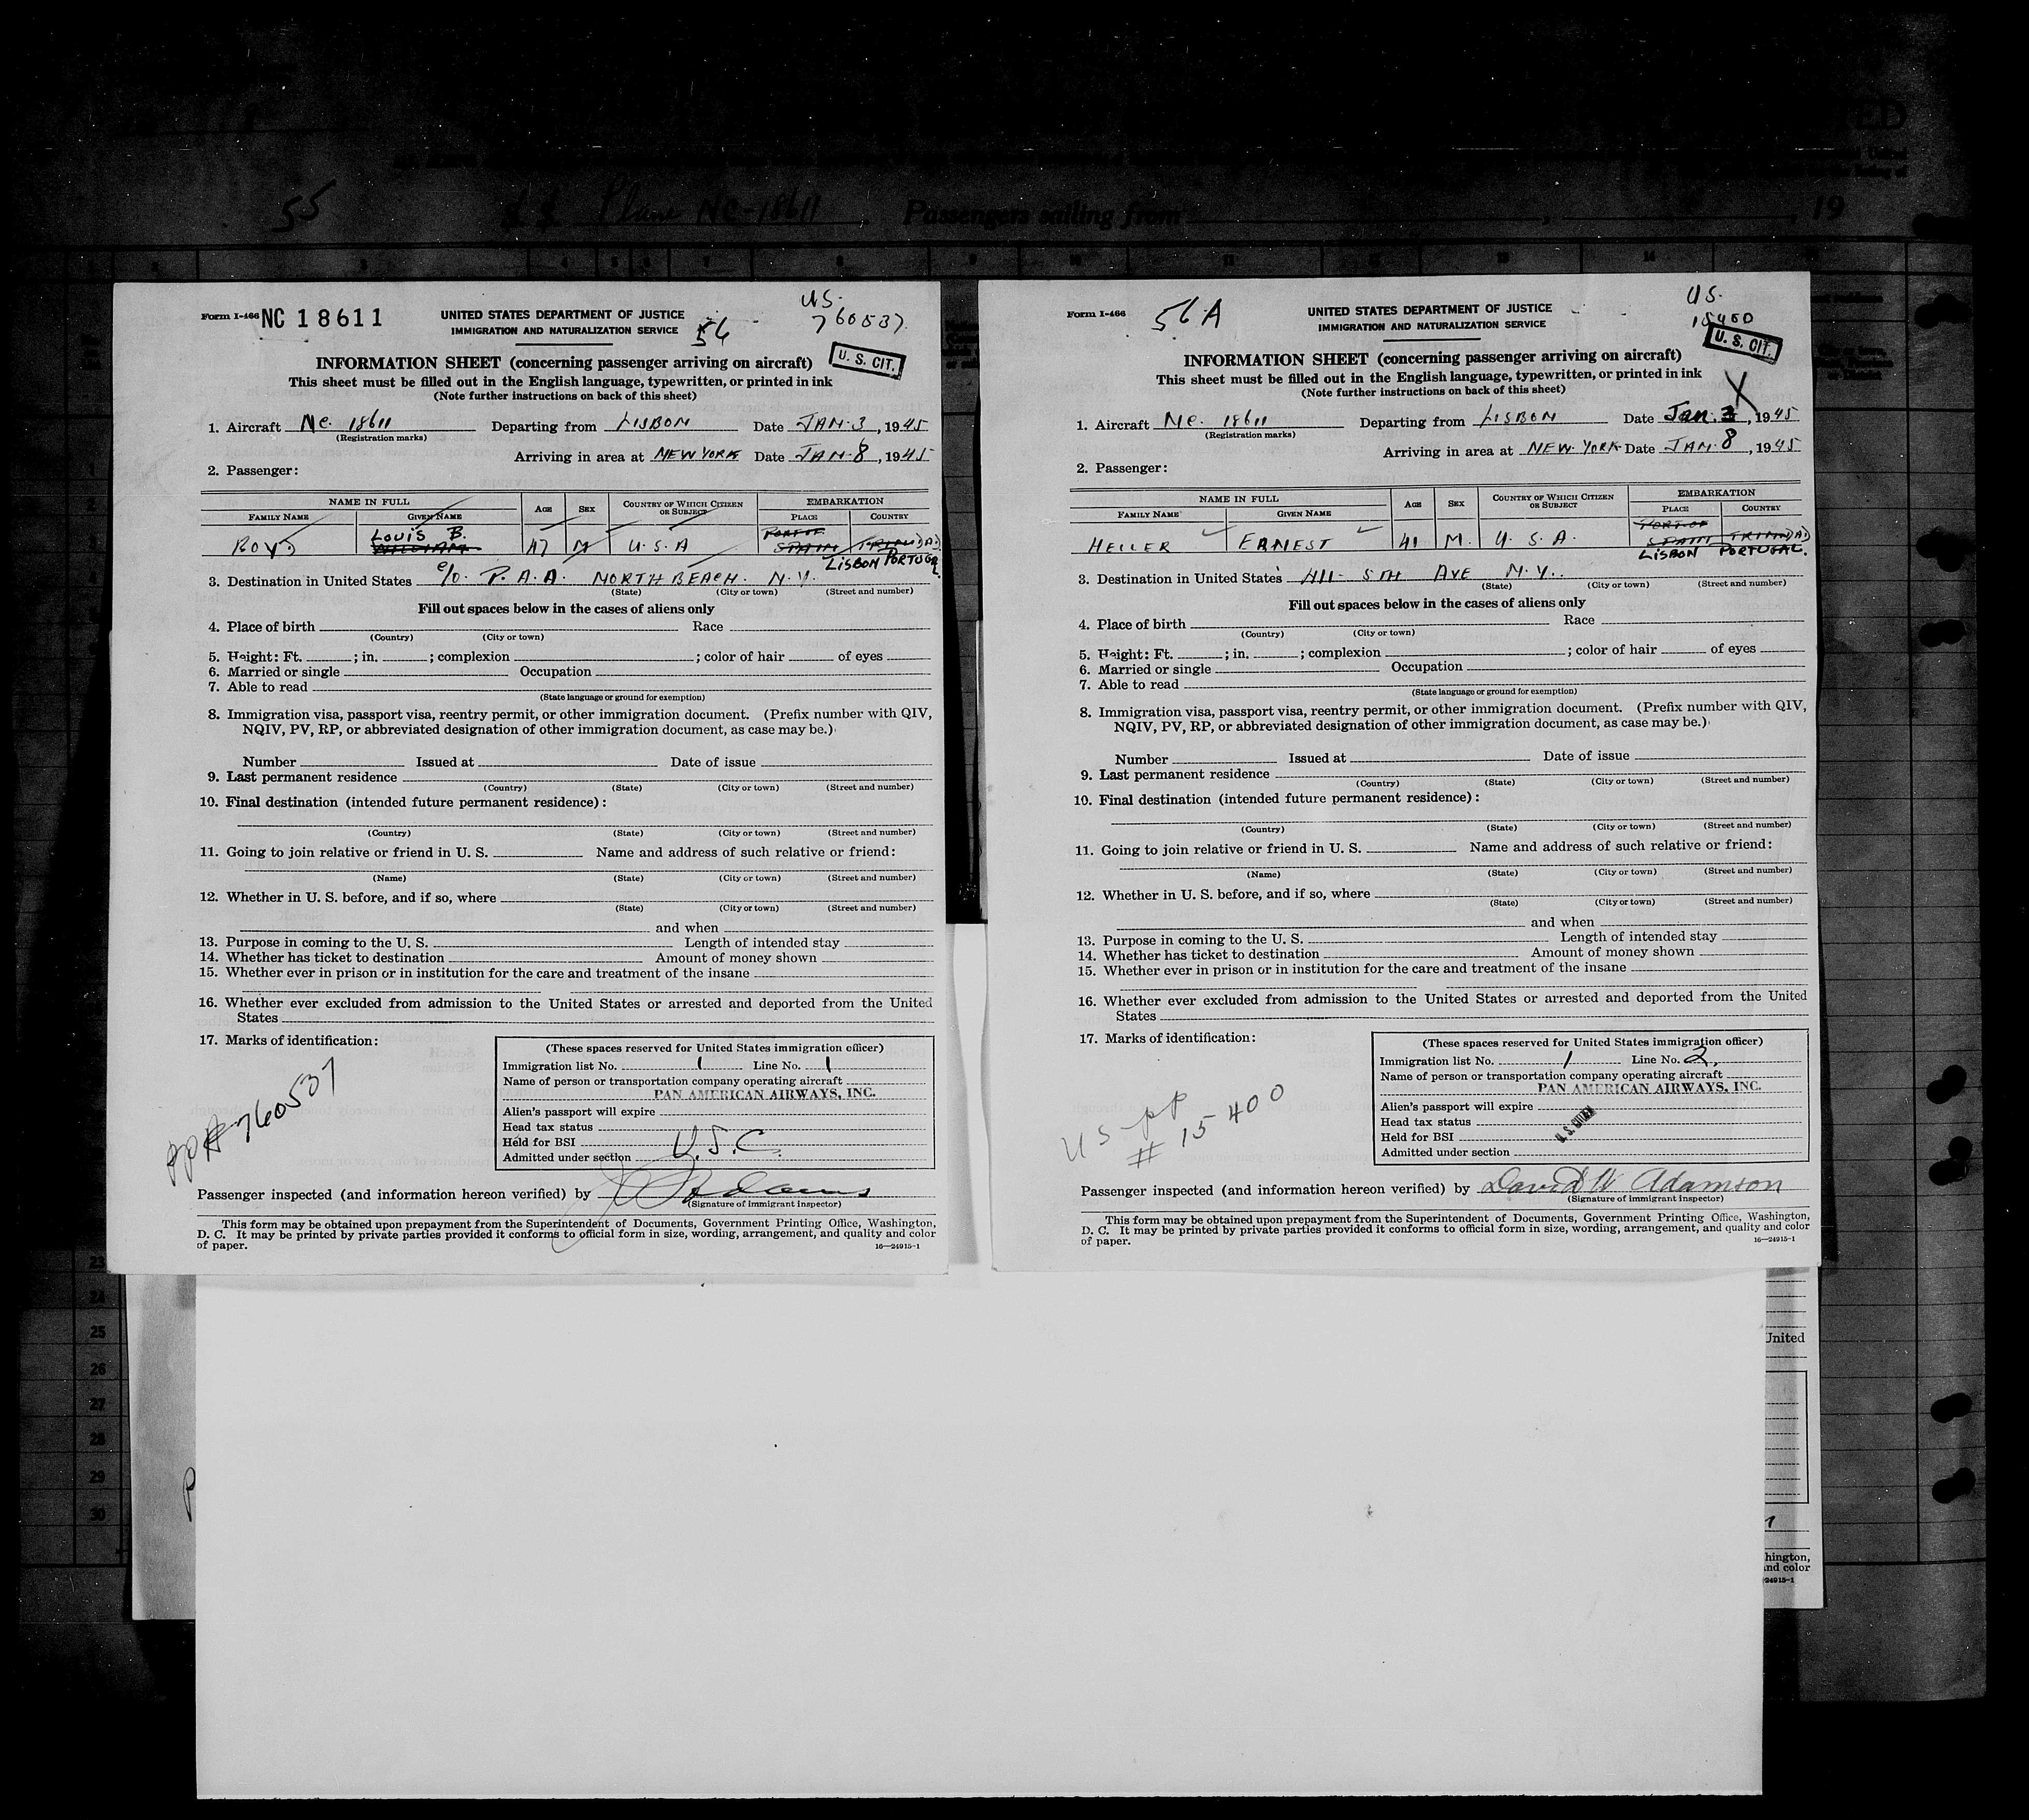 55
Plane NC-18611, Passengers sailing from , , 19
Form I-466 NC 18611
UNITED STATES DEPARTMENT OF JUSTICE
IMMIGRATION AND NATURALIZATION SERVICE
56
US.
760537.
U. S. CIT.
INFORMATION SHEET (concerning passenger arriving on aircraft)
This sheet must be filled out in the English language, typewritten, or printed in ink
(Note further instructions on back of this sheet)
1. Aircraft NC. 18611 Departing from LISBON Date JAN. 3, 1945
(Registration marks)
Arriving in area at NEW YORK Date JAN. 8, 1945
2. Passenger:
NAME IN FULL AGE SEX COUNTRY OF WHICH CITIZEN OR SUBJECT EMBARKATION
FAMILY NAME GIVEN NAME PLACE COUNTRY
LOUIS B. PORT OF
BOYD WILLIAM 47 M U.S.A SPAIN TRINIDAD
LISBON PORTUGAL
3. Destination in United States c/o. P.A.A. NORTH BEACH. N.Y.
(State) (City or town) (Street and number)
Fill out spaces below in the cases of aliens only
4. Place of birth Race
(Country) (City or town)
5. Height: Ft. ; in. ; complexion ; color of hair of eyes
6. Married or single Occupation
7. Able to read
(State language or ground for exemption)
8. Immigration visa, passport visa, reentry permit, or other immigration document. (Prefix number with QIV,
NQIV, PV, RP, or abbreviated designation of other immigration document, as case may be.)
Number Issued at Date of issue
9. Last permanent residence
(Country) (State) (City or town) (Street and number)
10. Final destination (intended future permanent residence):
(Country) (State) (City or town) (Street and number)
11. Going to join relative or friend in U. S. Name and address of such relative or friend:
(Name) (State) (City or town) (Street and number)
12. Whether in U. S. before, and if so, where
(State) (City or town) (Street and number)
and when
13. Purpose in coming to the U. S. Length of intended stay
14. Whether has ticket to destination Amount of money shown
15. Whether ever in prison or in institution for the care and treatment of the insane
16. Whether ever excluded from admission to the United States or arrested and deported from the United
States
17. Marks of identification:
PP# 760537
(These spaces reserved for United States immigration officer)
Immigration list No. 1 Line No. 1
Name of person or transportation company operating aircraft
PAN AMERICAN AIRWAYS, INC.
Alien's passport will expire
Head tax status
Held for BSI
Admitted under section U.S.C.
Passenger inspected (and information hereon verified) by
(Signature of immigrant inspector)
This form may be obtained upon prepayment from the Superintendent of Documents, Government Printing Office, Washington,
D. C. It may be printed by private parties provided it conforms to official form in size, wording, arrangement, and quality and color
of paper.
16—24915-1
Form I-466
56A
UNITED STATES DEPARTMENT OF JUSTICE
IMMIGRATION AND NATURALIZATION SERVICE
US.
15400
U. S. CIT.
INFORMATION SHEET (concerning passenger arriving on aircraft)
This sheet must be filled out in the English language, typewritten, or printed in ink
(Note further instructions on back of this sheet)
X
1. Aircraft NC. 18611 Departing from LISBON Date Jan. 3, 1945
(Registration marks)
Arriving in area at NEW YORK Date JAN. 8, 1945
2. Passenger:
NAME IN FULL AGE SEX COUNTRY OF WHICH CITIZEN OR SUBJECT EMBARKATION
FAMILY NAME GIVEN NAME PLACE COUNTRY
PORT OF
HELLER ERNEST 41 M. U.S.A. SPAIN TRINIDAD
LISBON PORTUGAL.
3. Destination in United States 411- 5TH AVE N.Y.
(State) (City or town) (Street and number)
Fill out spaces below in the cases of aliens only
4. Place of birth Race
(Country) (City or town)
5. Height: Ft. ; in. ; complexion ; color of hair of eyes
6. Married or single Occupation
7. Able to read
(State language or ground for exemption)
8. Immigration visa, passport visa, reentry permit, or other immigration document. (Prefix number with QIV,
NQIV, PV, RP, or abbreviated designation of other immigration document, as case may be.)
Number Issued at Date of issue
9. Last permanent residence
(Country) (State) (City or town) (Street and number)
10. Final destination (intended future permanent residence):
(Country) (State) (City or town) (Street and number)
11. Going to join relative or friend in U. S. Name and address of such relative or friend:
(Name) (State) (City or town) (Street and number)
12. Whether in U. S. before, and if so, where
(State) (City or town) (Street and number)
and when
13. Purpose in coming to the U. S. Length of intended stay
14. Whether has ticket to destination Amount of money shown
15. Whether ever in prison or in institution for the care and treatment of the insane
16. Whether ever excluded from admission to the United States or arrested and deported from the United
States
17. Marks of identification:
US PP
# 15400
(These spaces reserved for United States immigration officer)
Immigration list No. 1 Line No. 2,
Name of person or transportation company operating aircraft
PAN AMERICAN AIRWAYS, INC.
Alien's passport will expire
Head tax status
Held for BSI
U. S. CITIZEN
Admitted under section
Passenger inspected (and information hereon verified) by David W Adamson
(Signature of immigrant inspector)
This form may be obtained upon prepayment from the Superintendent of Documents, Government Printing Office, Washington,
D. C. It may be printed by private parties provided it conforms to official form in size, wording, arrangement, and quality and color
of paper.
16—24915-1
23
24
25
26
27
28
29
30
United
hington,
nd color
24915-1